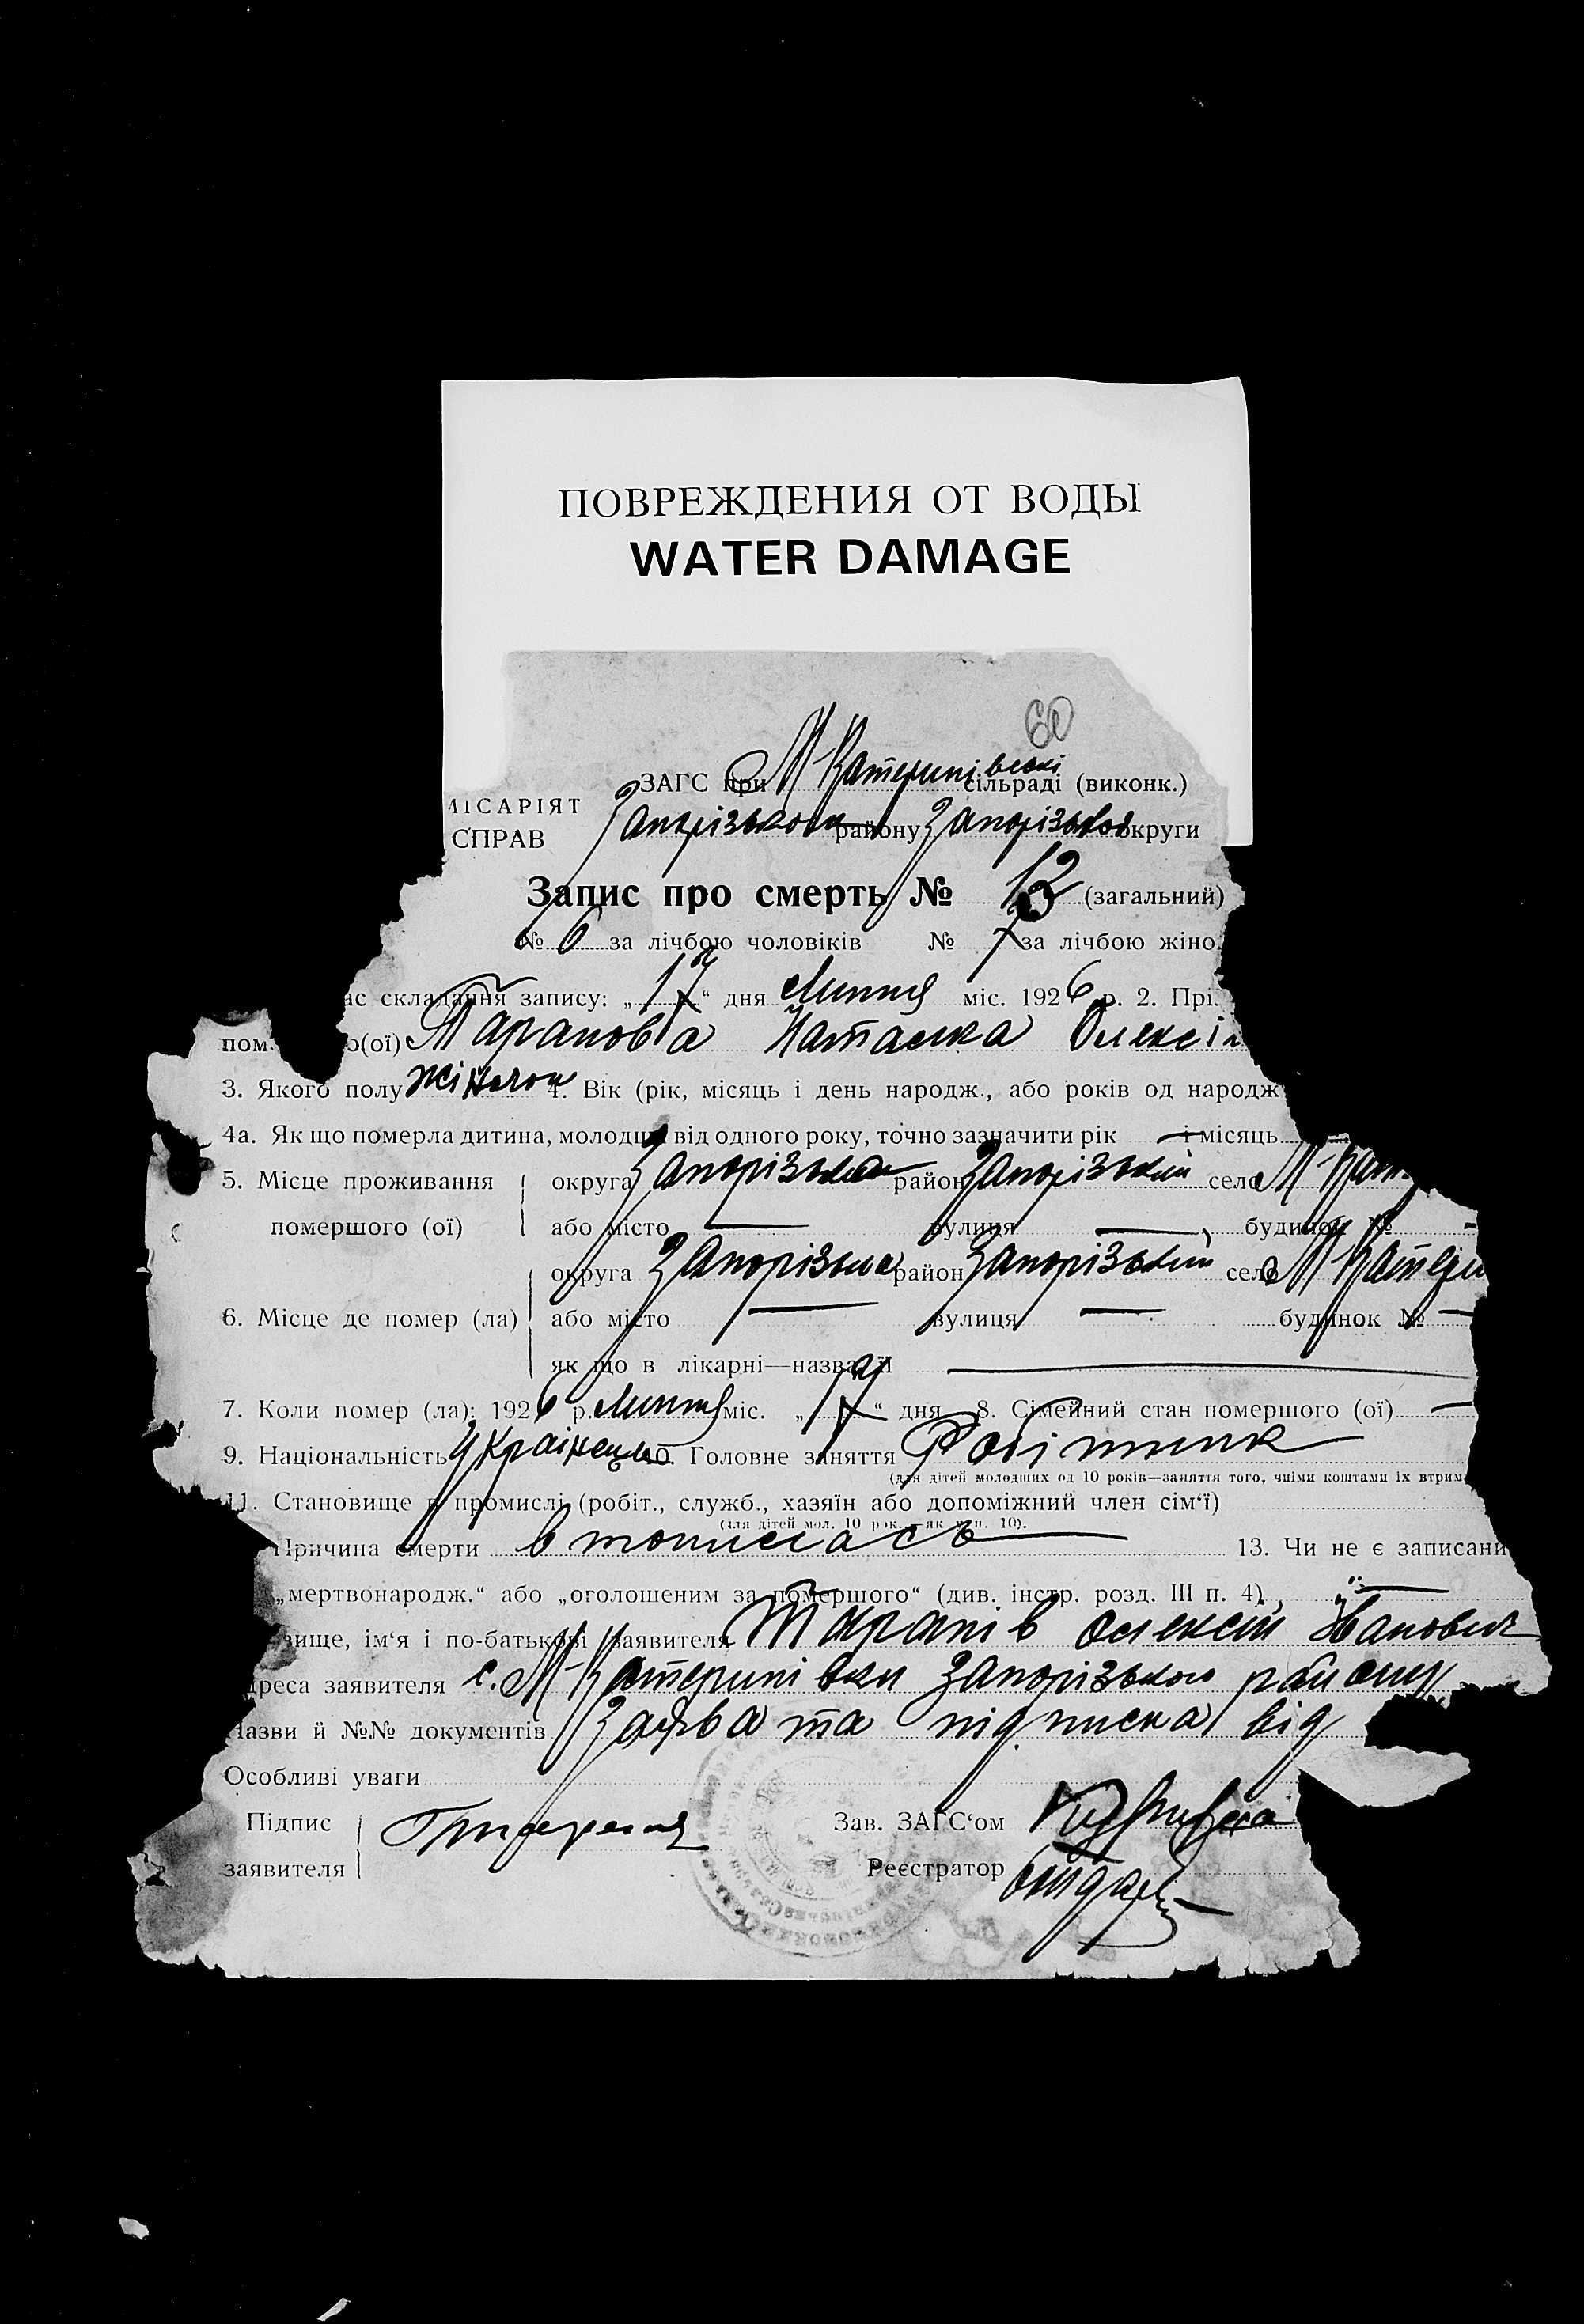 ПОВРЕЖДЕНИЯ ОТ ВОДЫ
WATER DAMAGE
60
ЗАГС при М-Катеринівські сільраді (виконк.)
МІСАРІЯТ
СПРАВ
Запорізького району Запорізької округи
Запис про смерть № 13 (загальний)
№ 6 за лічбою чоловіків № 7 за лічбою жіно
ас складання запису: „17“ дня Липня міс. 1926 р. 2. Прі
пом о(ої) Таранова Наталка Олексі
3. Якого полу жіночої 4. Вік (рік, місяць і день народж., або років од народж
4а. Як що померла дитина, молодша від одного року, точно зазначити рік — і місяць
5. Місце проживання округа Запорізька район Запорізький село М-Кат
помершого (ої) або місто — вулиця — будинок № —
округа Запорізька район Запорізький село М-Катери
6. Місце де помер (ла) або місто — вулиця — будинок № —
як що в лікарні—назва її —
7. Коли помер (ла): 1926 р. Липня міс. „17“ дня 8. Сімейний стан помершого (ої) —
9. Національність Українець 10. Головне заняття Робітник
(для дітей молодших од 10 років—заняття того, чиїми коштами їх втрим
11. Становище в промислі (робіт., служб., хазяїн або допоміжний член сім‘ї)
(для дітей мол. 10 рок.—як у п. 10).
Причина смерти втопилась 13. Чи не є записани
„мертвонародж.“ або „оголошеним за помершого“ (див. інстр. розд. III п. 4) —
звище, ім‘я і по-батькові заявителя Таранів Олексій Іванович
дреса заявителя с. М-Катеринівки Запорізького району
Назви й №№ документів Заява та підписка від
Особливі уваги
Підпис Зав. ЗАГС‘ом
заявителя Реєстратор